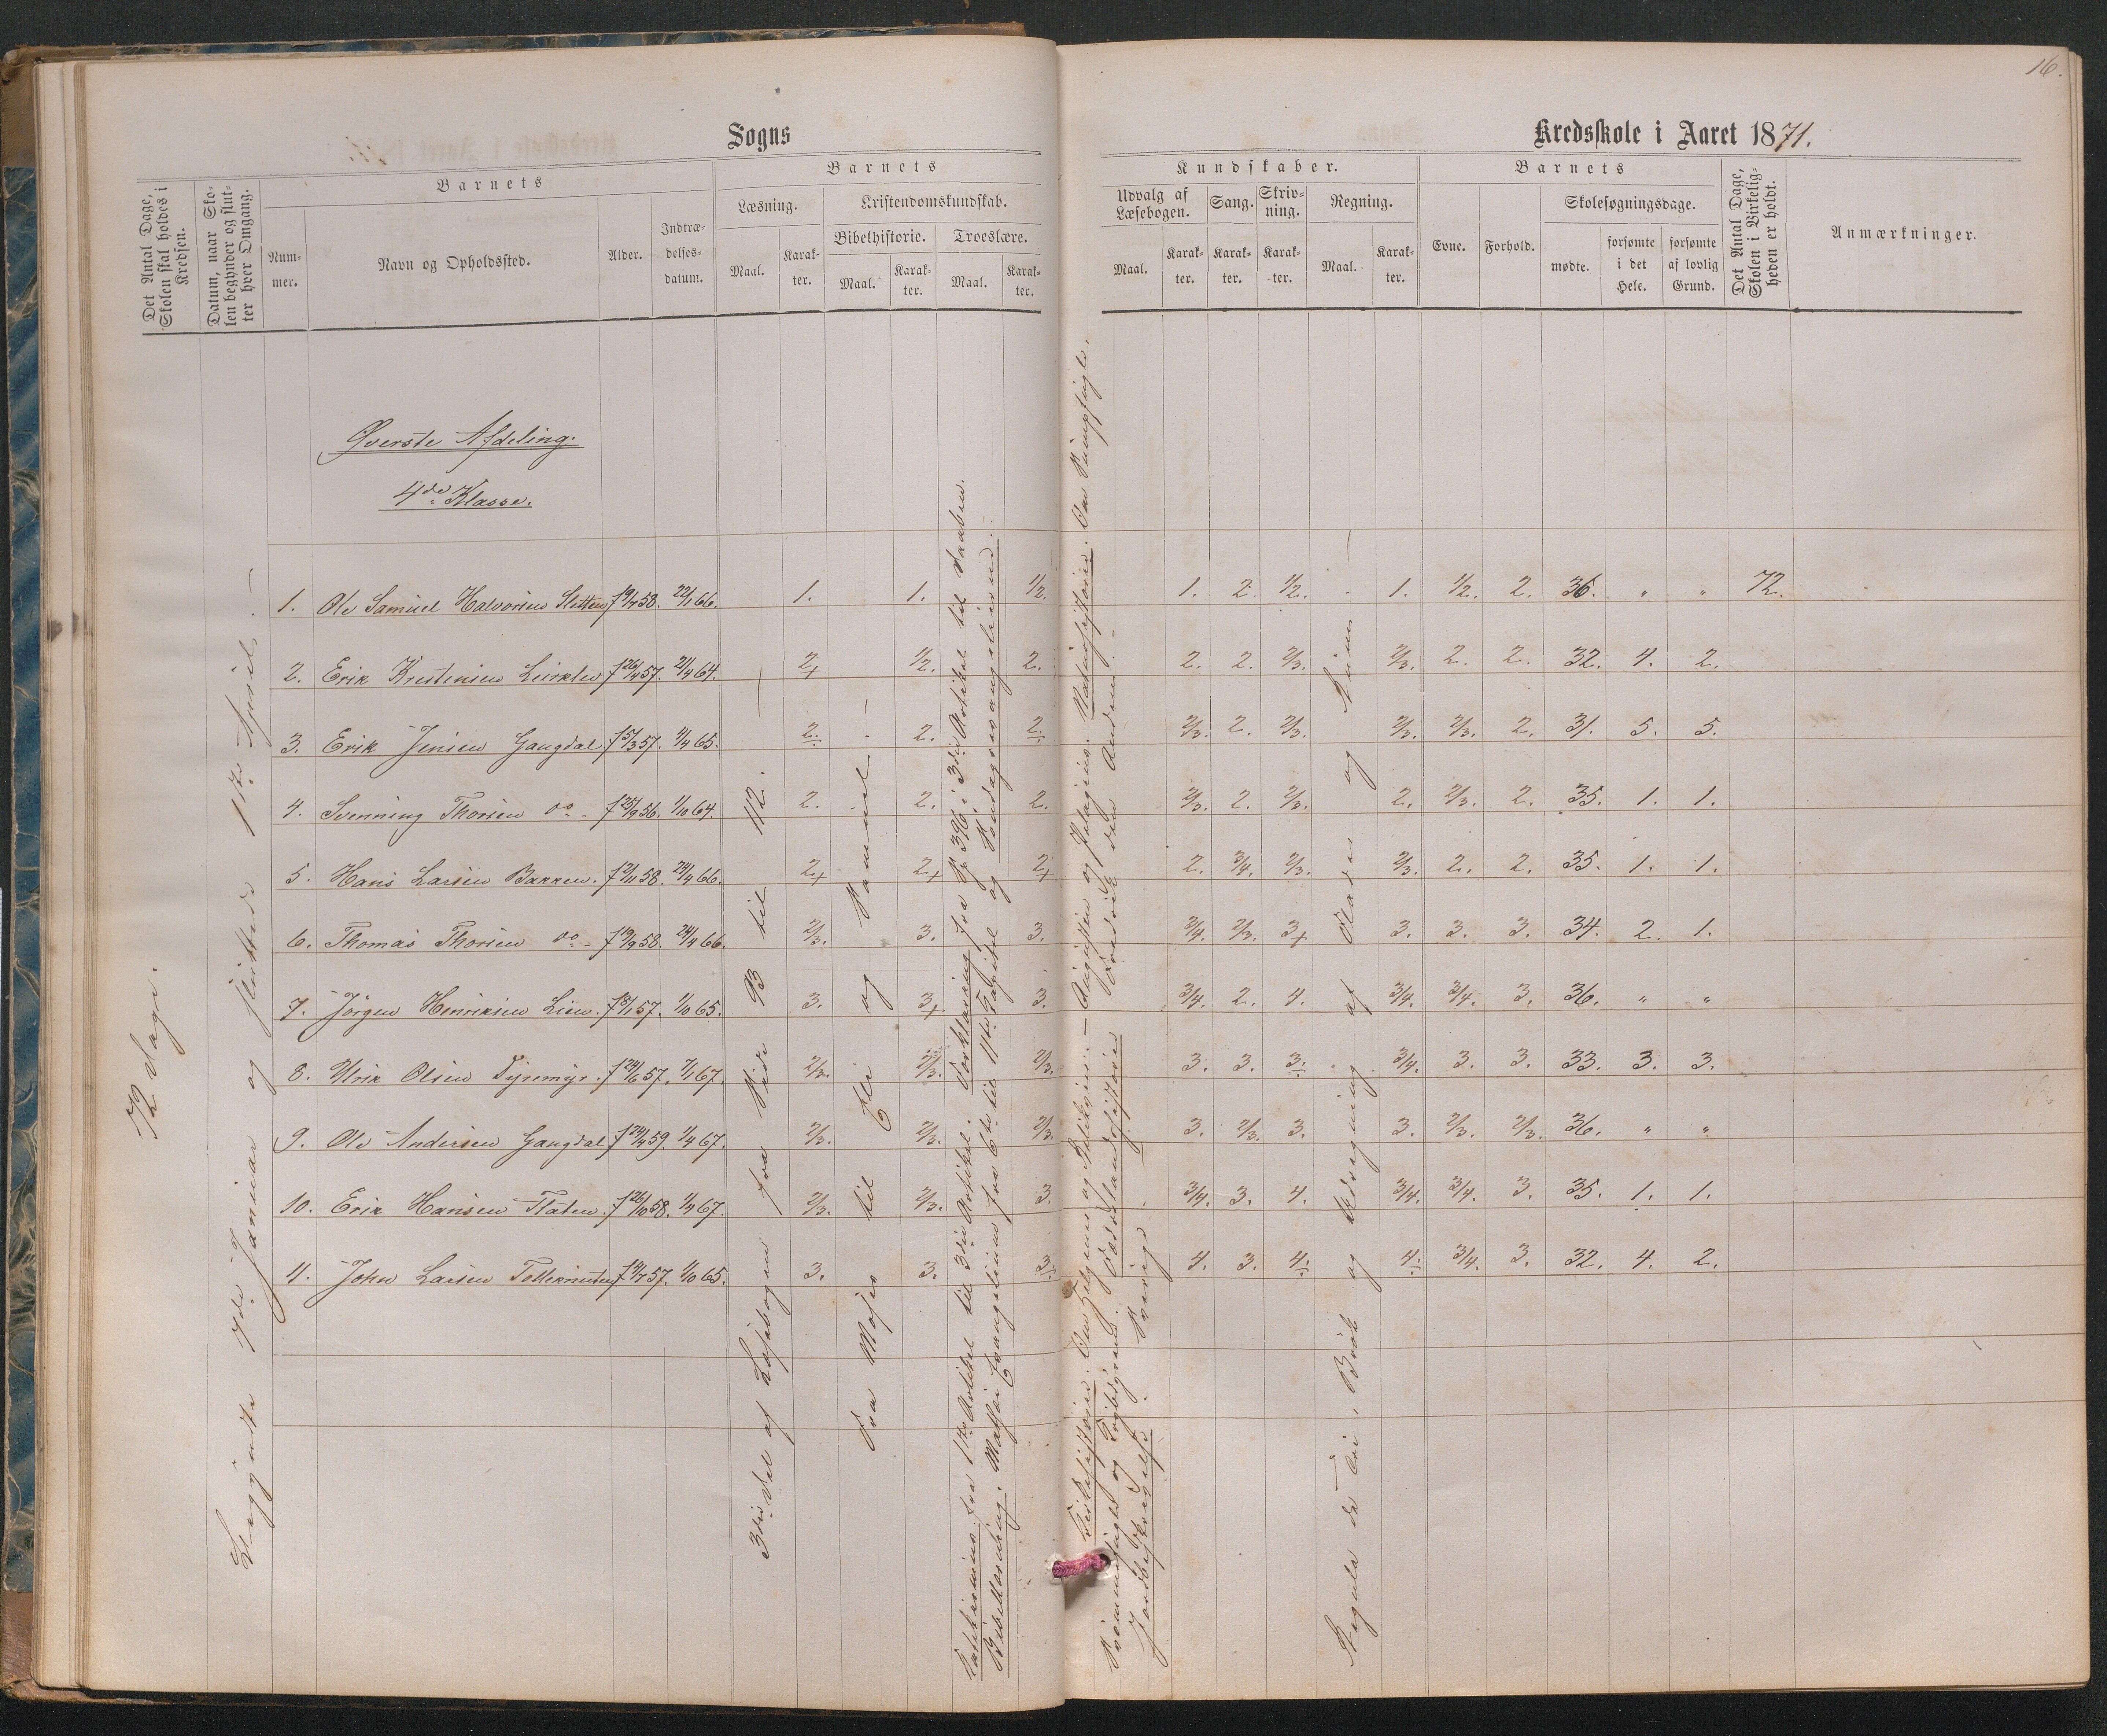 16.
Sogns
Kredsskole i Aaret 1871.
Det Antal Dage, Skolen skal holdes i Kredsen.
Datum, naar Skolen begynder og slutter hver Omgang.
Barnets
Nummer.
Navn og Opholdssted.
Alder.
Indtrædelsesdatum.
Barnets
Læsning.
Maal.
Karakter.
Kristendomskundskab.
Bibelhistorie.
Maal.
Karakter.
Troeslære.
Maal.
Karakter.
Kundskaber.
Udvalg af Læsebogen.
Maal.
Karakter.
Sang.
Karakter.
Skrivning.
Karakter.
Regning.
Maal.
Karakter.
Barnets
Evne.
Forhold.
Skolesøgningsdage.
mødte.
forsømte i det Hele.
forsømte af lovlig Grund.
Det Antal Dage, Skolen i Virkeligheden er holdt.
Anmærkninger.
72 Dage.
Begyndte 7de Januar og sluttede 1ste April.
Øverste Afdeling.
4de Klasse.
1. Ole Samuel Halvorsen Sletten f 19/7 58. 22/1 66. 1. 1. 1/2. 1. 2. 1/2. 1. 1/2. 2. 36. " " 72.
2. Erik Kristensen f 26/4 57. 21/4 64. 2+ 1/2. 2. 2. 2. 2/3. 2/3. 2. 2. 32. 4. 2.
3. Erik Jensen Gangdal f 5/3 57. 4/4 65. 2. 2. 2. 2/3. 2. 2/3. 2/3. 2/3. 2. 31. 5. 5.
4. Svenning Thorsen do f 25/9 56. 1/10 64. 2. 2. 2. 2/3. 2. 2/3. 2. 2/3. 2. 35. 1. 1.
5. Hans Larsen Bakken. f 2/11 58. 24/4 66. 2+ 2+ 2+ 2. 3/4. 2/3. 2/3. 2. 2. 35. 1. 1.
6. Thomas Thorsen do f 19/9 58. 24/4 66. 2/3. 3. 3. 3/4. 2/3. 3+ 3. 3. 3. 34. 2. 1.
7. Jörgen Henriksen Lien. f 8/1 57. 1/10 65. 3. 3+ 3. 3/4. 2. 4. 3/4. 3/4. 3. 36. " "
8. Ulrik Olsen Tyremyr. f 24/6 57. 7/1 67. 2/3. 2/3. 2/3. 3. 3. 3. 3/4. 3. 3. 33. 3. 3.
9. Ole Andersen Gangdal f 24/4 59. 1/4 67. 2/3. 2/3. 2/3. 3. 2/3. 3. 3. 2/3. 2/3. 36. " "
10. Erik Hansen Flaten. f 26/10 58. 1/4 67. 2/3. 2/3. 3. 3/4. 3. 4. 3/4. 3/4. 3. 35. 1. 1.
11. John Larsen f 14/7 57. 1/10 65. 3. 3. 3. 4. 3. 4. 4. 3/4. 3. 32. 4. 2.
3die Del af Læsebogen fra Side 93 til 112.
Fra Moses til Eli og Samuel
Katekismus fra 1ste Artikel til 3die Artikel. Forklaring fra Sp. 396 i 3die Artikel til Daaben.
Bibellæsning. Matthæi Evangelium fra 6te til 11te Kapitel og Søndagsevangelierne.
Kirkehistorie. Om Helgener og Relikvier. — Augustin og Pelagius. Naturhistorie. Om
og Fædrelandshistorie Fredrik den Anden.
Jordbeskrivelse Sverige
Regula de Tri i Brök og Udregning af Flader og Rum